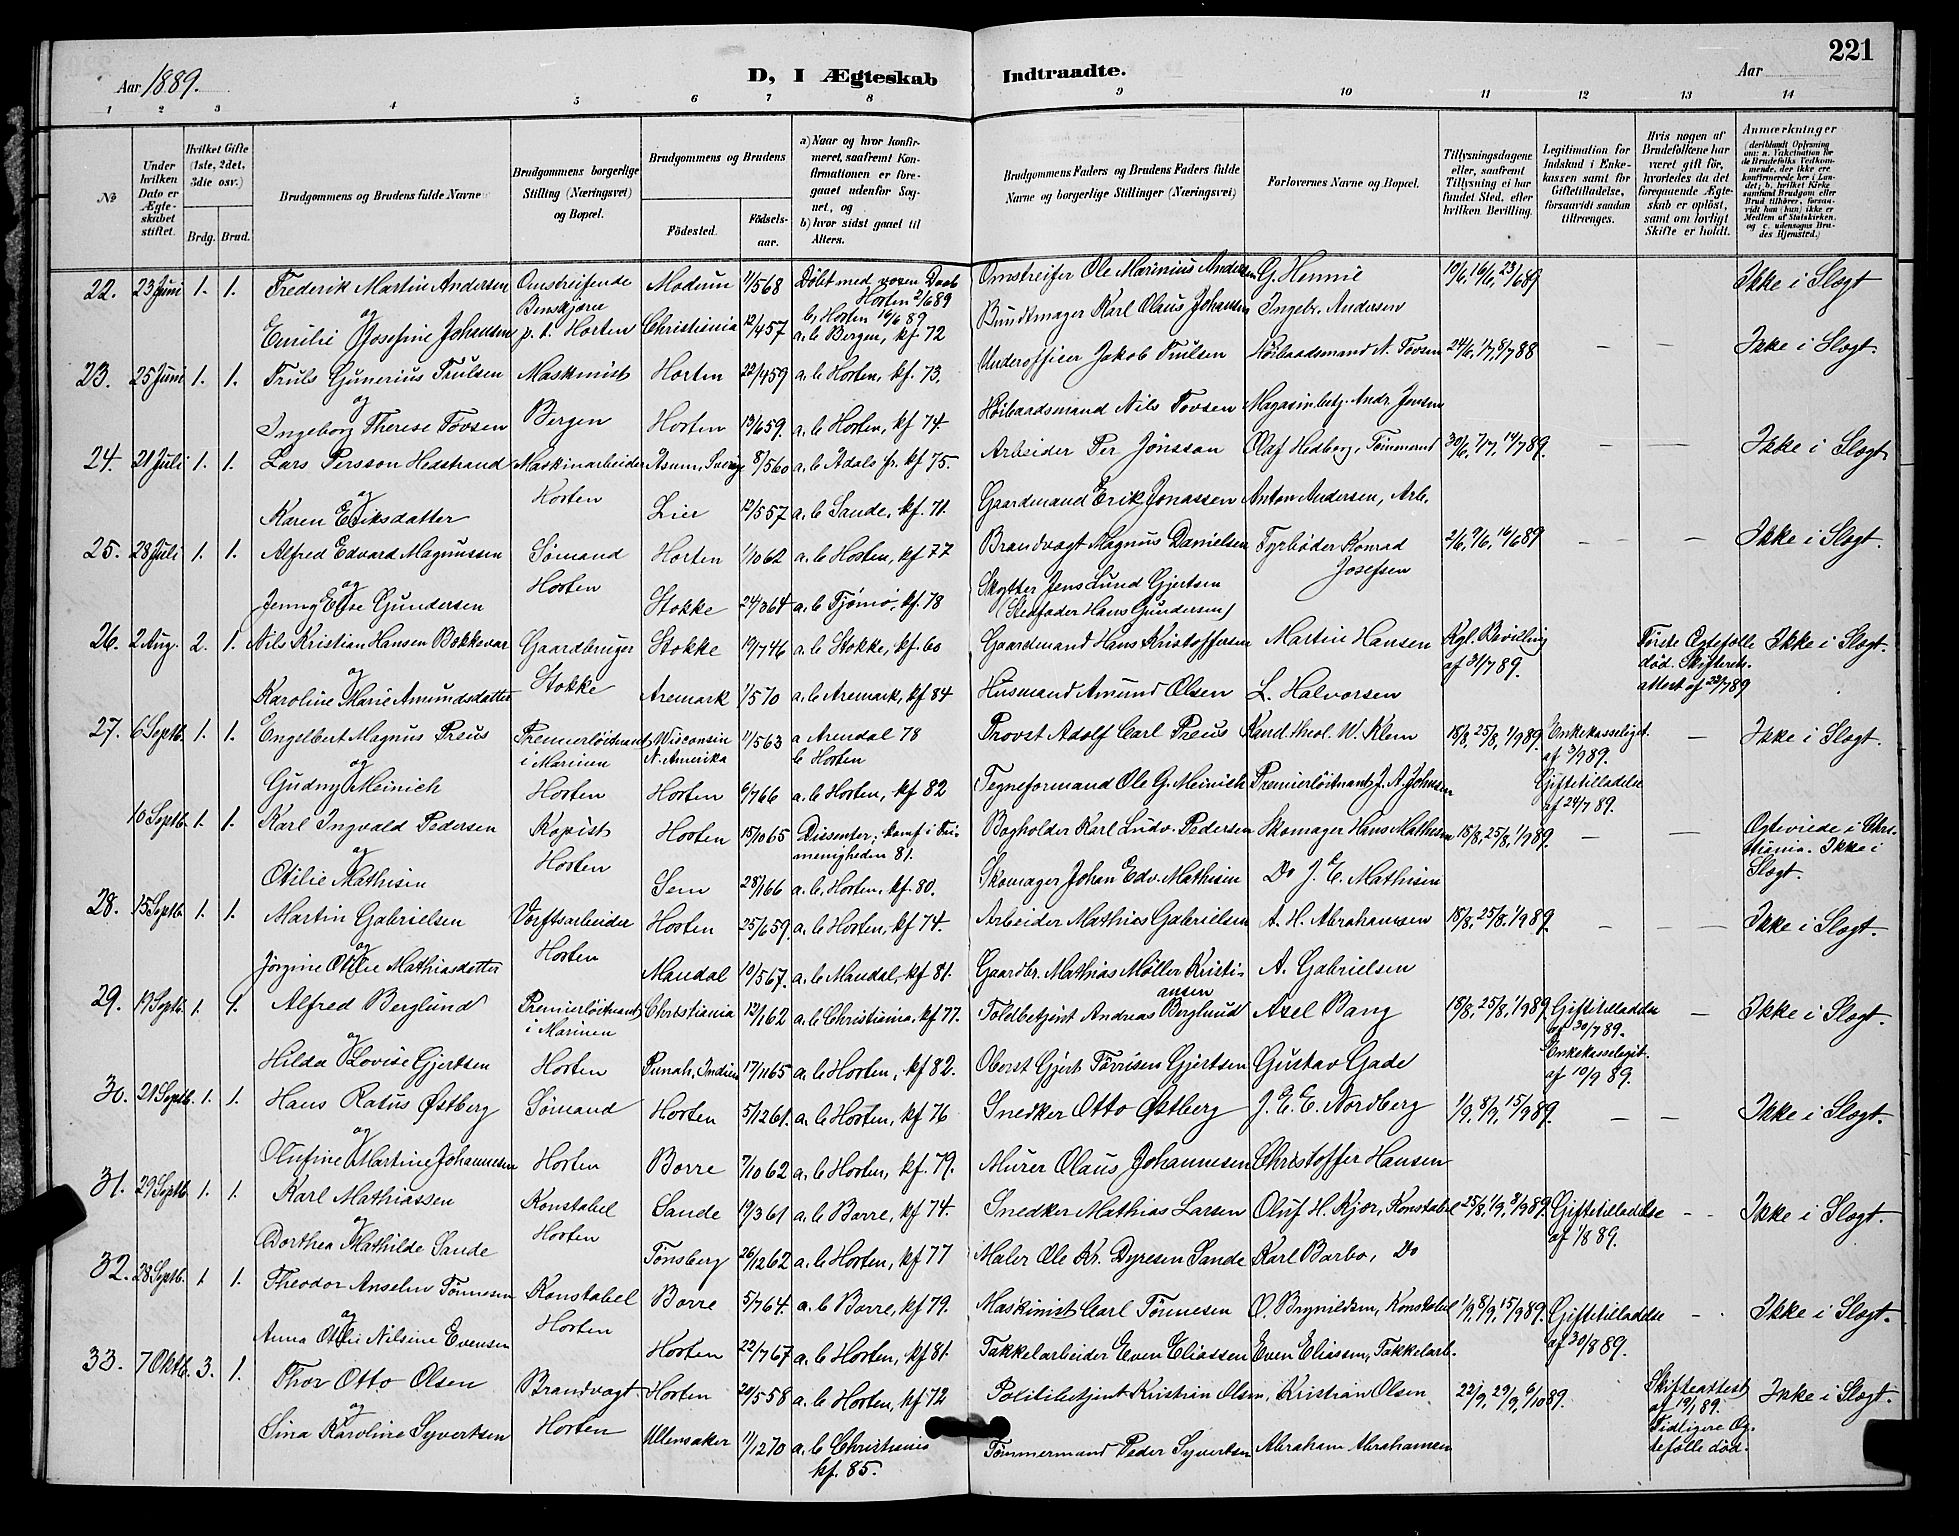 221
Aar 1889.
D, I Ægteskab Indtraadte.
Aar
1 2 3 4 5 6 7 8 9 10 11 12 13 14
No
Under hvilken Dato er Ægteskabet stiftet.
Hvilket Gifte (1ste, 2det, 3die osv.)
Brdg. Brud.
Brudgommens og Brudens fulde Navne
Brudgommens borgerlige Stilling (Næringsvei) og Bopæl.
Brudgommens og Brudens
Födested.
Födselsaar.
a) Naar og hvor konfirmeret, saafremt Konfirmationen er foregaaet udenfor Sognet, og
b) hvor sidst gaaet til Alters.
Brudgommens Faders og Brudens Faders fulde Navne og borgerlige Stillinger (Næringsvei)
Forlovernes Navne og Bopæl.
Tillysningsdagene eller, saafremt Tillysning ei har fundet Sted, efter hvilken Bevilling.
Legitimation for Indskud i Enkekassen samt for Giftetilladelse, forsaavidt saadan tiltrænges.
Hvis nogen af Brudefolkene har været gift för, hvorledes da det foregaaende Ægteskab er oplöst, samt om lovligt Skifte er holdt.
Anmærkninger (deriblandt Oplysning om: a. Vakcination for de Brudefolks Vedkommende, der ikke ere konfirmerede her i Landet; b. hvilket Kirkesamfund Brudgom eller Brud tilhörer, forsaavidt han (hun) ikke er Medlem af Statskirken, og c. udensogns Brudes Hjemsted.)
22. 23 Juni 1. 1. Frederik Martin Andersen Omstreifende Modum 11/5 68 Döbt med voxen Daab Omstreifer Ole Marinius Andersen G. Hennie 10/6, 16/6, 23/6 89 Ikke i Slægt
og Horten 2/6 89
b, Horten 16/6 89
Emilie Josefine Johansen p. t. Horten Christiania 12/4 57 a. b Bergen, kf 72 Bundtmager Karl Olaus Johansen Ingebr. Andersen
23. 25 Juni 1. 1. Truls Gunerius Trulsen Maskinist Horten 22/4 59 a. b Horten, kf. 73. Underofficer Jakob Trulsen Höibaadsmand N. Tovsen 24/6, 1/7, 8/7 88 – – Ikke i Slægt.
og
Ingeborg Therese Tovsen Bergen Horten 13/6 59. a. b Horten, kf 74. Höibaadsmand Nils Tovsen Magasinbetj. Andr. Jensen
24. 21 Juli 1. 1. Lars Persson Hedstrand Maskinarbeider Asum, Sverig 8/5 60 a. b Adals pr. kf 75. Arbeider Per Jönsson Olaf Hedberg, Tömmerm 30/6, 7/7, 14/7 89. – – Ikke i Slægt
og
Karen Eriksdatter Horten Lier 12/5 57 a. b Sande, kf. 71. Gaardmand Erik Jonassen Anton Andersen, Arb.
25. 28 Juli 1. 1. Alfred Edvard Magnussen Sömand Horten 1/10 62 a. b Horten, kf 77 Brandvagt Magnus Danielsen Fyrböder Konrad Josefsen 2/6, 9/6, 16/6 89 – – Ikke i Slægt.
og
Jenny Elise Gundersen Horten Stokke 24/3 64 a. b Tjömö, kf. 78 Skytter Jens Lund Gjertsen
(Stedfader Hans Gundersen)
26. 2 Aug. 2. 1. Nils Kristian Hansen Bakkevar Gaardbruger Stokke 19/7 46 a. b Stokke, kf. 60 Gaardmand Hans Kristoffersen Martin Hansen Kgl. Bevilling af 31/7 89. Förste Ægtefælle död. Skifteretsattest af 22/7 89 Ikke i Slægt.
og
Karoline Marie Amundsdatter Stokke Aremark 1/5 70 a. b Aremark, kf 84 Husmand Amund Olsen L. Halvorsen
27. 6 Septb. 1. 1. Engelbert Magnus Preus Premierlöitnant i Marinen Wisconsin N. Amerika 11/5 63 a Arendal 78 b Horten Provst Adolf Carl Preus Kand. theol. W. Klem 18/8, 25/8, 1/9 89. Enkekasselegit. af 3/9 89. – Ikke i Slægt.
og
Gudny Meinich Horten Horten 6/7 66 a. b Horten, kf 82 Tegneformand Ole G. Meinich Premierlöitnant J. A. Johnsen Giftetilladelse af 24/7 89.
10 Septb. 1. 1. Karl Ingvald Pedersen Kopist Horten 15/10 65 Dissenter; konf. i Frimenigheden 81. Bogholder Karl Ludv. Pedersen Skomager Hans Mathisen 18/8, 25/8, 1/9 89. – – Ægteviede i Christiania. Ikke i Slægt.
og
Otilie Mathisen Horten Sem 28/1 66 a. b, Horten, kf. 80. Skomager Johan Edv. Mathisen Do J. E. Mathisen
28. 15 Septb. 1. 1. Martin Gabrielsen Værftsarbeider Horten 25/6 59. a. b Horten, kf 74. Arbeider Mathias Gabrielsen A. H. Abrahamsen 18/8, 25/8, 1/9 89. – – – Ikke i Slægt.
og
Jörgine Otilie Mathiasdatter Horten Mandal 10/5 67. a. b Mandal, kf 81. Gaardbr. Mathias Möller Kristiansen A. Gabrielsen
29. 17 Septb. 1. 1. Alfred Berglund Premierlöitnant i Marinen Christiania 12/1 62 a. b Christiania, kf. 77. Toldbetjent Andreas Berglund Axel Bang 18/8, 25/8, 1/9 89. Giftetilladelse af 30/7 89. – Ikke i Slægt.
og
Hilda Lovise Gjertsen Horten Punah, Indien 17/11 65 a. b Horten, kf 82. Oberst Gjert Törrisen Gjertsen Gustav Gade Enkekasselegit. af 10/9 89.
30. 21 Septb. 1. 1. Hans Ratus Östberg Sömand Horten 5/12 61. a. b Horten, kf 76 Snedker Otto Östberg J. E. E. Nordberg 1/9, 8/9, 15/9 89. – – Ikke i Slægt.
og
Olufine Martine Johannesen Horten Borre 7/10 62 a. b Horten, kf. 79. Murer Olaus Johannesen Christoffer Hansen
31. 29 Septb. 1. 1. Karl Mathiassen Konstabel Sande 19/3 61 a. b Borre, kf 74. Snedker Mathias Larsen Oluf H. Kjær, Konstabel 25/8, 1/9, 8/9 89. Giftetilladelse af 1/8 89. – – Ikke i Slægt.
og
Dorthea Mathilde Sande Horten Tönsberg 26/12 62 a. b Horten, kf 77 Maler Ole Kr. Dyresen Sande Karl Barbo, Do
32. 28 Septb. 1. 1. Theodor Anselm Tönnesen Konstabel Borre 5/7 64. a. b Borre, kf 79. Maskinist Carl Tönnesen O. Brynildsen, Konstabel 1/9, 8/9, 15/9 89. Giftetilladelse af 30/8 89. – – Ikke i Slægt.
og
Anna Otilie Nilsine Evensen Horten Horten 22/7 67 a. b Horten, kf 81. Takkelarbeider Even Eliassen Even Eliassen, Takkelarb.
33. 7 Oktb. 3. 1. Thor Otto Olsen Brandvagt Horten 20/5 58 a. b Horten, kf 72 Politibetjent Kristian Olsen, Kristian Olsen 22/9, 29/9, 6/10 89. Skifteattest af 19/1 89. Tidligere Ægtefælle död. Ikke i Slægt.
og
Sina Karoline Syvertsen Horten Ullensaker 11/12 70 a. b Christiania kf. 85. Tömmermand Peder Syvertsen Abraham Abrahamsen